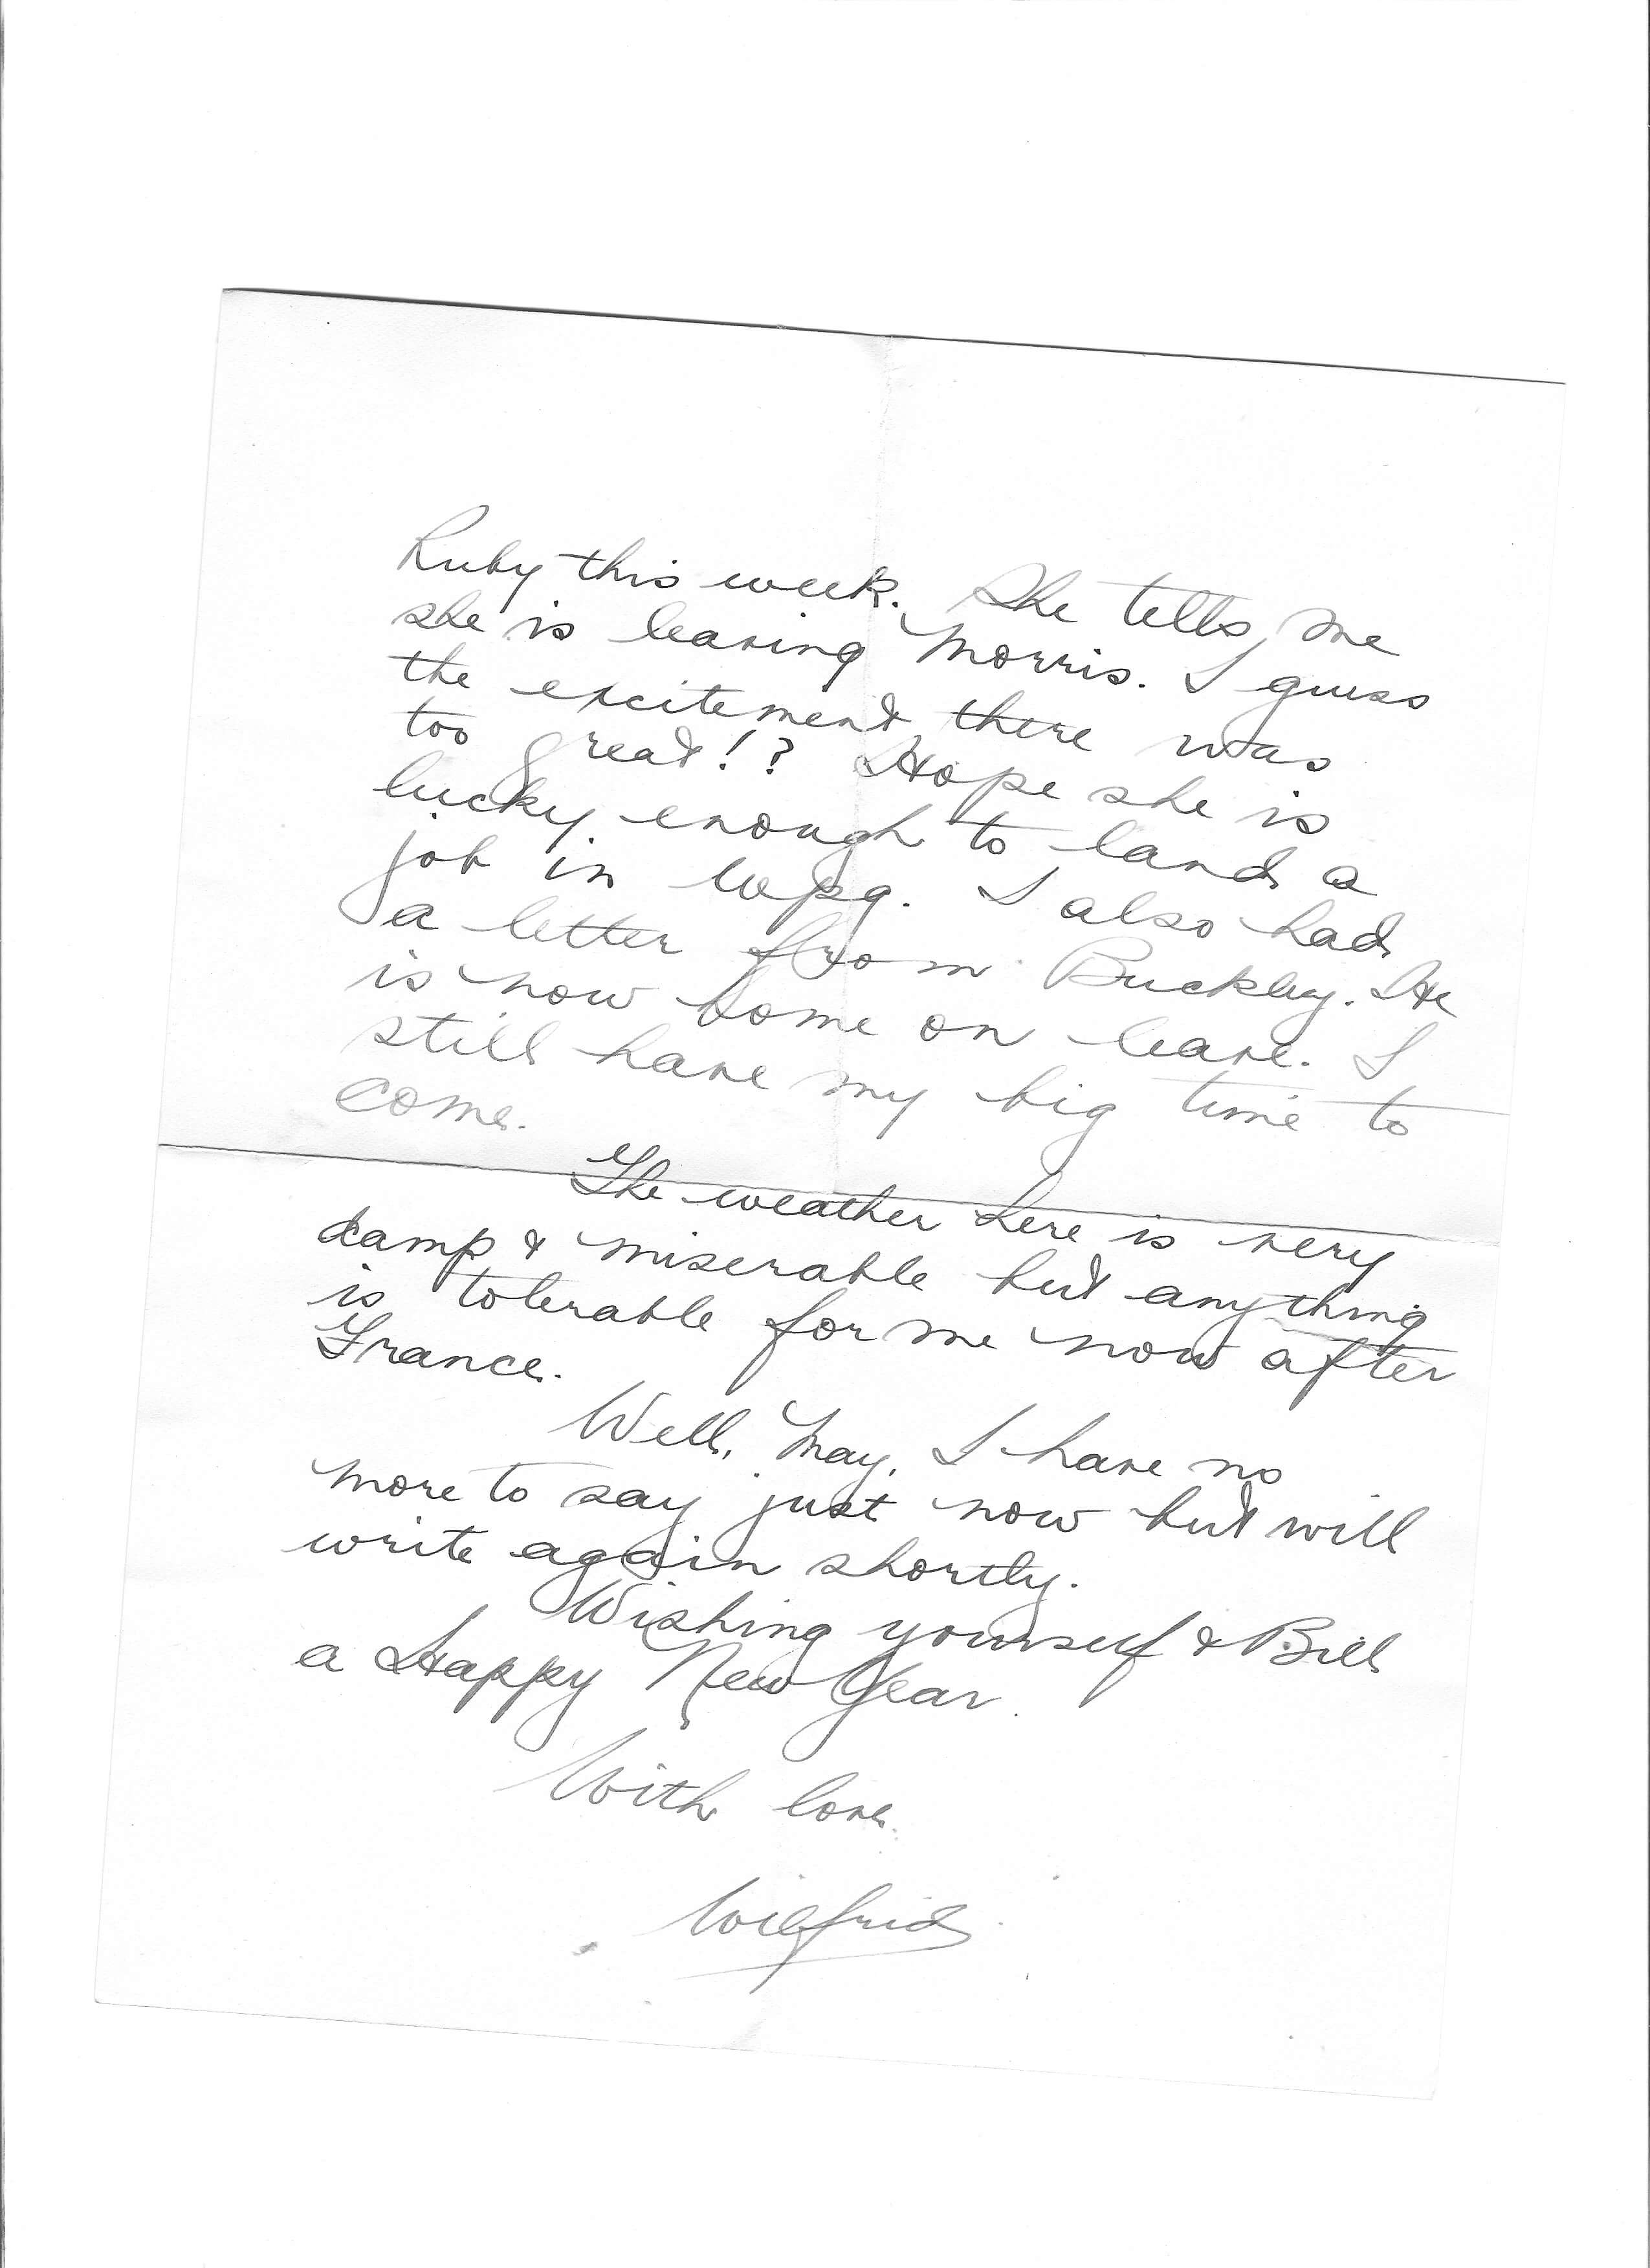 Ruby this week. She tells me
she is leaving Morris. I guess
the excitement there was
too great!? Hope she is
lucky enough to land a
job in Wpg. I also had
a letter from Buckley. He
is now home on leave. I
still have my big time to
come.
The weather here is very
damp & miserable but anything
is tolerable for me now after
France.
Well, May, I have no
more to say just now but will
write again shortly.
Wishing yourself & Bill
a Happy New Year.
With love.
Wilfrid